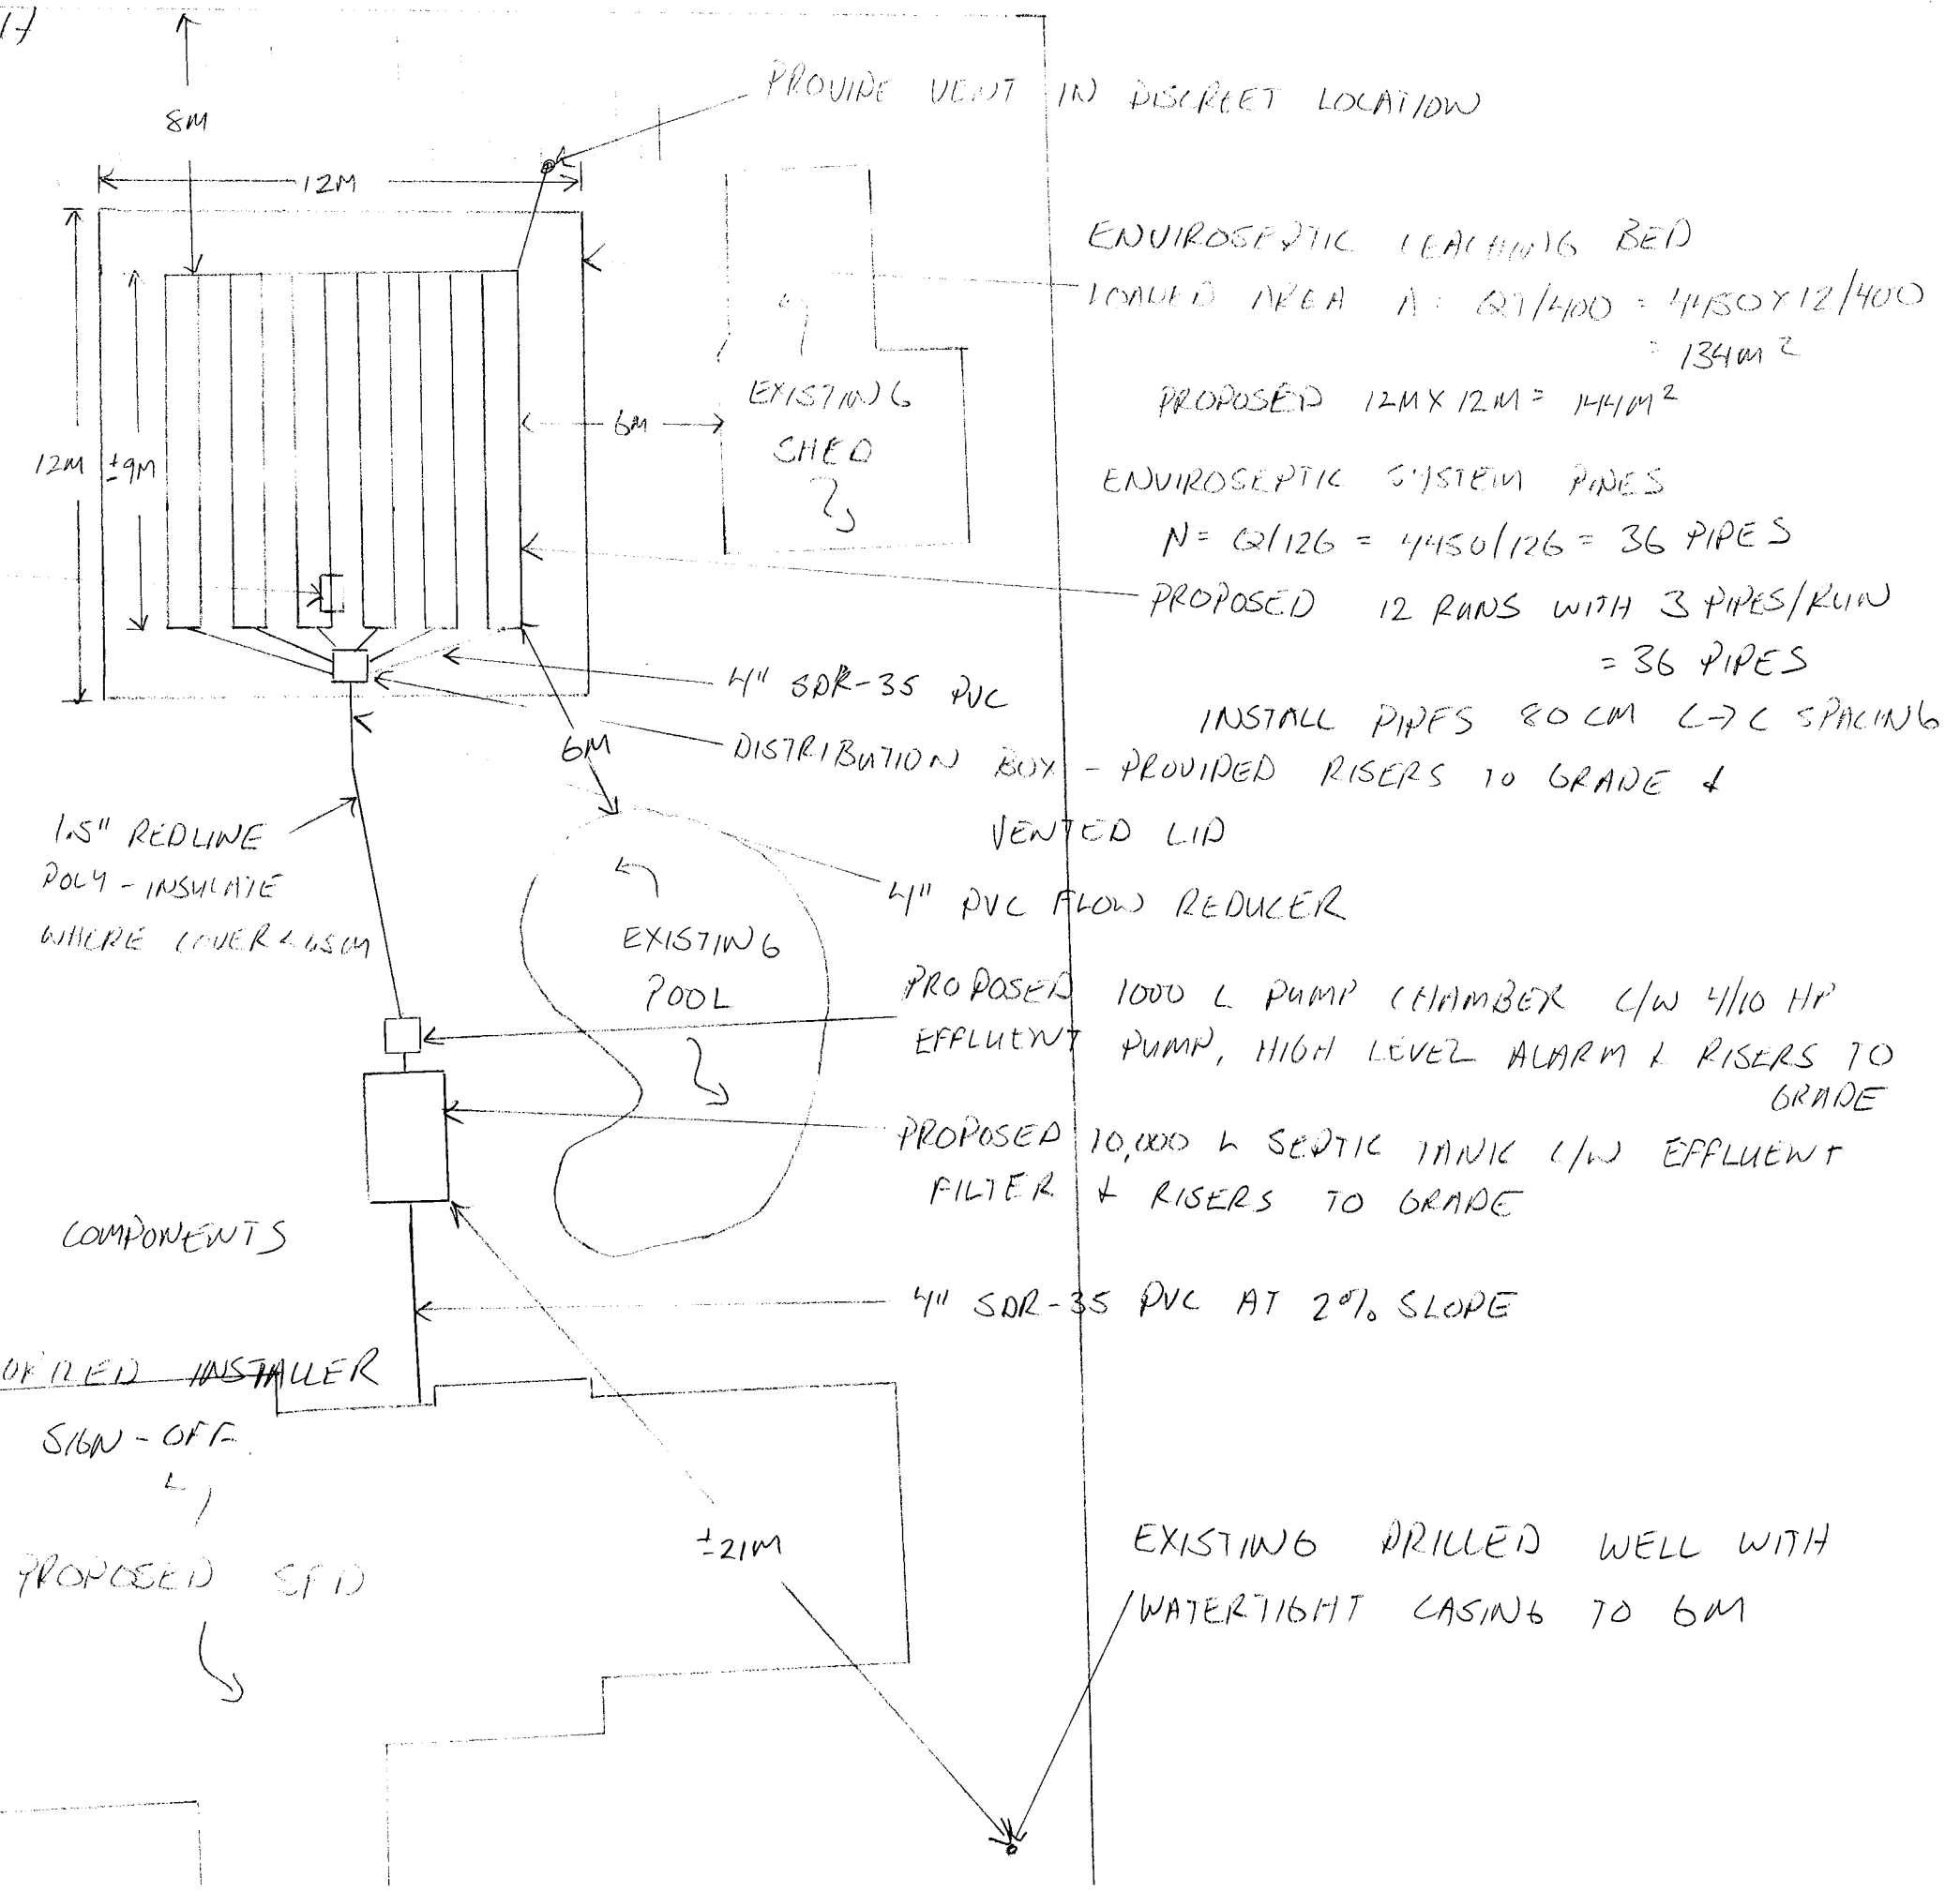 8M
PROVIDE VENT IN DISCREET LOCATION
12M
ENVIROSEPTIC LEACHING BED
LOADED AREA A = QT/400 = 4450 X 12/400
= 134M²
PROPOSED 12M X 12M = 144M²
EXISTING
SHED
6M
12M
±9M
ENVIROSEPTIC SYSTEM PIPES
N = Q/126 = 4450/126 = 36 PIPES
PROPOSED 12 RUNS WITH 3 PIPES/RUN
= 36 PIPES
INSTALL PIPES 80 CM C->C SPACING
4" SDR-35 PVC
6M
DISTRIBUTION BOX - PROVIDED RISERS TO GRADE &
VENTED LID
1.5" REDLINE
POLY - INSULATE
WHERE COVER <
4" PVC FLOW REDUCER
EXISTING
POOL
PROPOSED 1000 L PUMP CHAMBER C/W 4/10 HP
EFFLUENT PUMP, HIGH LEVEL ALARM & RISERS TO
GRADE
PROPOSED 10,000 L SEPTIC TANK C/W EFFLUENT
FILTER & RISERS TO GRADE
COMPONENTS
4" SDR-35 PVC AT 2% SLOPE
INSTALLER
SIGN-OFF
PROPOSED SFD
±21M
EXISTING DRILLED WELL WITH
WATERTIGHT CASING TO 6M